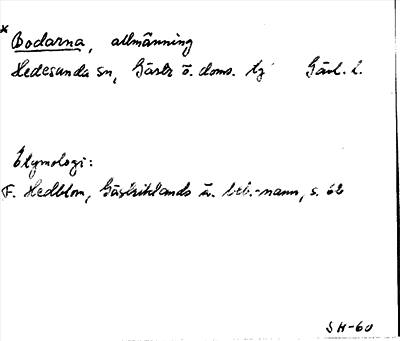 × Bodarna, allmänning
Hedesunda sn, Gästr. ö. doms. tg Gävl. l.
Etymologi:
F. Hedblom, Gästriklands ä. beb.-namn, s. 62
SH-60